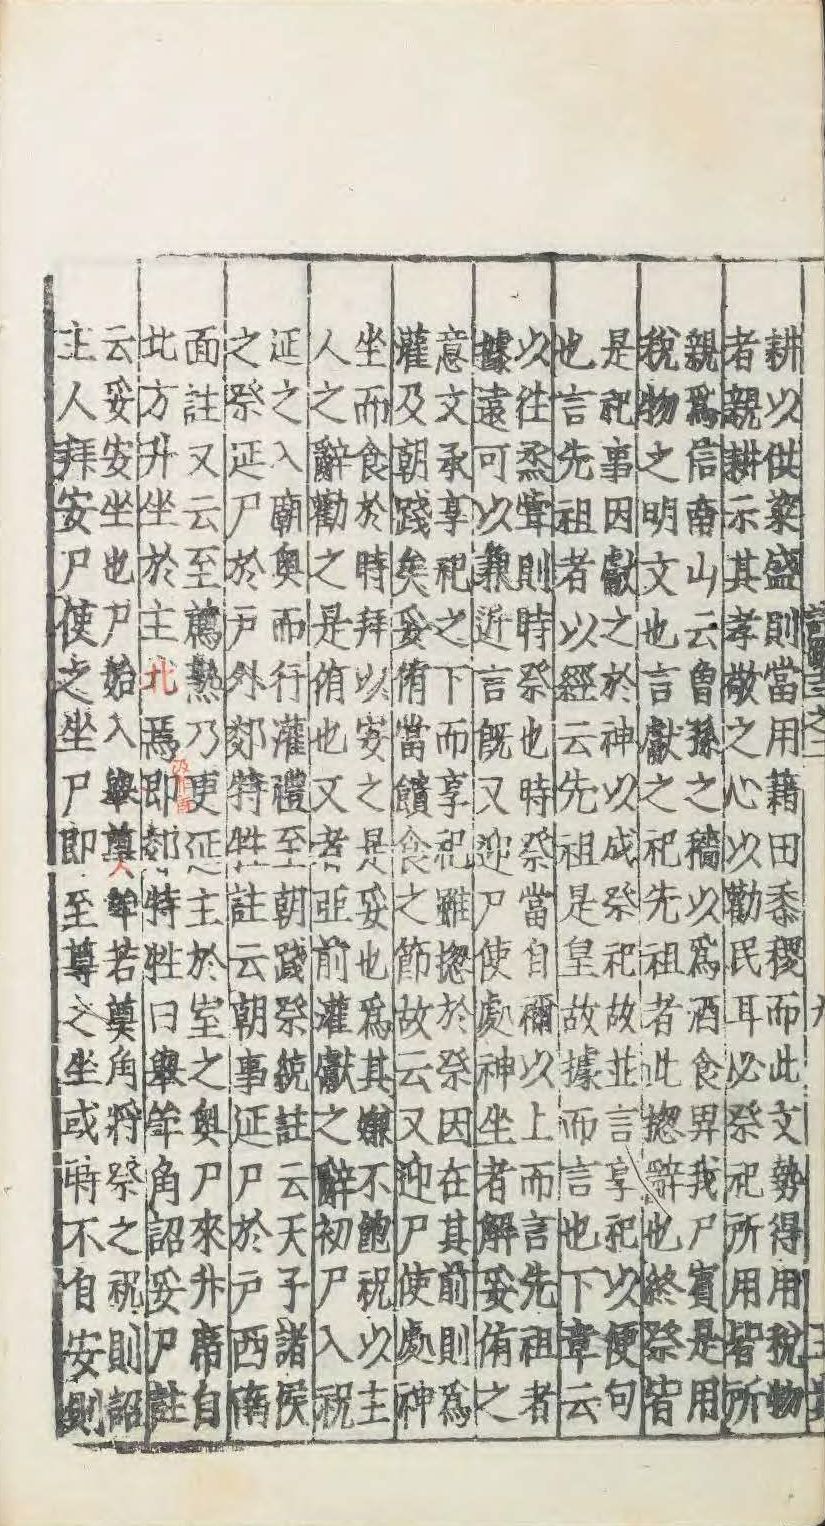 耕以供粢盛則當用藉田黍稷而此文勢得用稅物
者親耕示其孝敬之心以勸民耳必祭祀所用皆所
親爲信南山云曾孫之穡以爲酒食畀我尸賓是用
稅物之明文也言獻之祀先祖者此揔辭也終祭皆
是祀事因獻之於神以成祭祀故並言享祀以便句
也言先祖者以經云先祖是皇故據而言也下章云
以往烝甞則時祭也時祭當自禰以上而言先祖者
據遠可以兼近言旣又迎尸使處神坐者解妥侑之
意文承享祀之下而享祀雖揔於祭因在其前則爲
灌及朝踐矣妥侑當饋食之節故云又迎尸使處神
坐而食於時拜以安之是妥也爲其嫌不飽祝以主
人之辭勸之是侑也又者亞前灌獻之辭初尸入祝
延之入廟奥而行灌禮至朝踐祭統註云天子諸侯
之祭延尸於戸外郊特牲註云朝事延尸於戸西南
面註又云至薦熟乃更延主於室之奥尸來升席自
北方升坐於主北焉即郊特牲曰舉斝角詔妥尸註
云妥安坐也尸始入舉尊斝若奠角將祭之祝則詔
主人拜安尸使之坐尸即至尊之坐或時不自安則